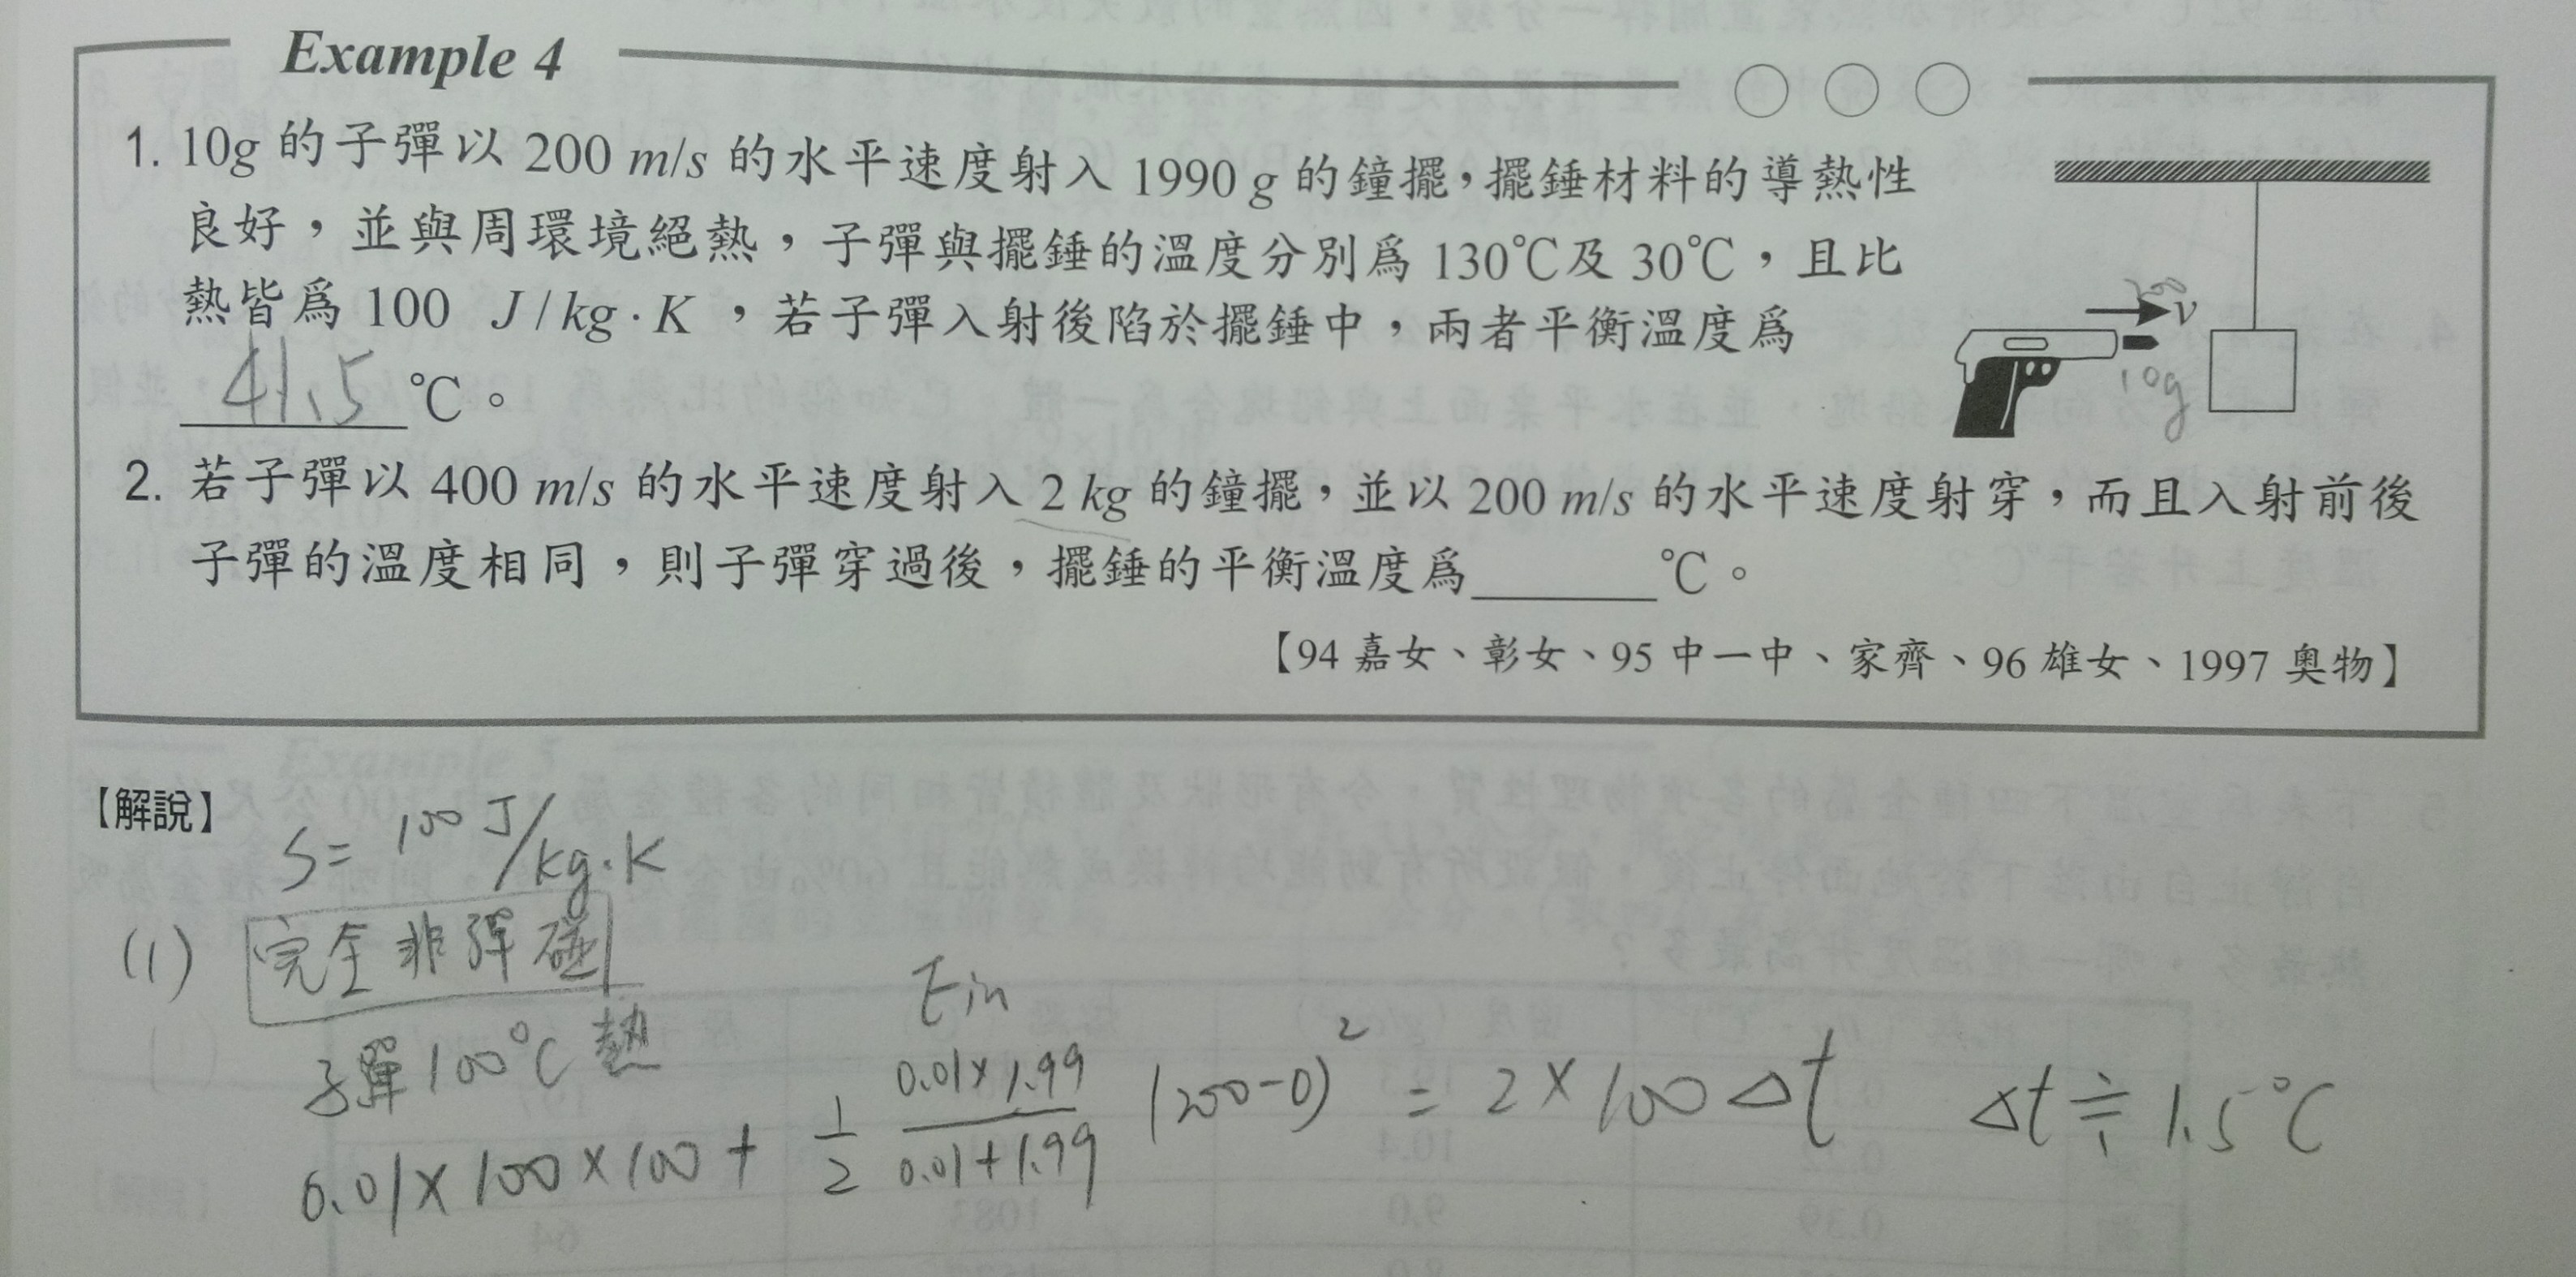 Example 4
1. 10g 的子彈以 200 m/s 的水平速度射入 1990 g 的鐘擺，擺錘材料的導熱性
良好，並與周環境絕熱，子彈與擺錘的溫度分別為 130℃及 30℃，且比
熱皆為 100 J/kg·K ，若子彈入射後陷於擺錘中，兩者平衡溫度為
41.5 ℃。
200
v
10g
2. 若子彈以 400 m/s 的水平速度射入 2 kg 的鐘擺，並以 200 m/s 的水平速度射穿，而且入射前後
子彈的溫度相同，則子彈穿過後，擺錘的平衡溫度為______℃。
【94 嘉女、彰女、95 中一中、家齊、96 雄女、1997 奧物】
【解說】
S= 100 J/kg·K
(1) 完全非彈碰
子彈100℃熱 Ein
0.01×100×100+ 1/2 (0.01×1.99)/(0.01+1.99) (200-0)² = 2×100Δt Δt≒1.5℃